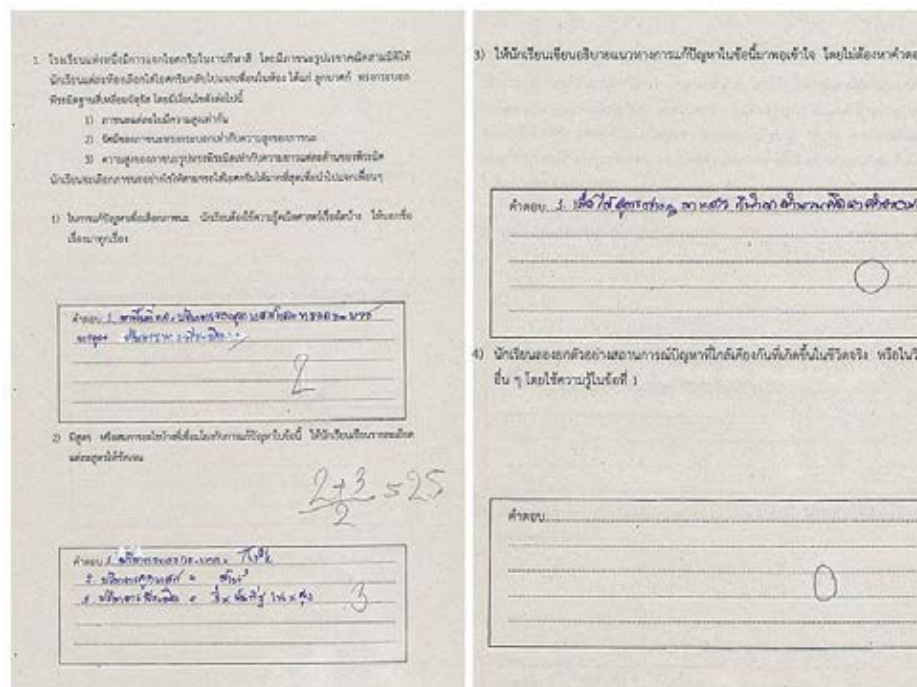 1. โรงเรียนแห่งหนึ่งมีการแจกไอศกรีมในงานกีฬาสี โดยมีภาชนะรูปเรขาคณิตสามมิติให้
นักเรียนแต่ละห้องเลือกใส่ไอศกรีมกลับไปแจกเพื่อนในห้อง ได้แก่ ลูกบาศก์ ทรงกระบอก
พีระมิดฐานสี่เหลี่ยมจัตุรัส โดยมีเงื่อนไขดังต่อไปนี้
1) ภาชนะแต่ละใบมีความสูงเท่ากัน
2) รัศมีของภาชนะทรงกระบอกเท่ากับความสูงของภาชนะ
3) ความสูงของภาชนะรูปทรงพีระมิดเท่ากับความยาวแต่ละด้านของพีระมิด
นักเรียนจะเลือกภาชนะอย่างไรให้สามารถใส่ไอศกรีมได้มากที่สุดเพื่อนำไปแจกเพื่อนๆ
1) ในการแก้ปัญหาเพื่อเลือกภาชนะ นักเรียนต้องใช้ความรู้คณิตศาสตร์เรื่องใดบ้าง ให้บอกชื่อ
เรื่องมาทุกเรื่อง
คำตอบ 1.
2
2) มีสูตร หรือสมการอะไรบ้างที่เชื่อมโยงกับการแก้ปัญหาในข้อนี้ ให้นักเรียนเขียนรายละเอียด
แต่ละสูตรให้ชัดเจน
2+3 = 25
2
คำตอบ 1. ปริมาตรทรงกระบอก = πr²h
2. ปริมาตรลูกบาศก์ = ด้าน³
3
3) ให้นักเรียนเขียนอธิบายแนวทางการแก้ปัญหาในข้อนี้มาพอเข้าใจ โดยไม่ต้องหาคำตอ
คำตอบ 1.
0
4) นักเรียนลองยกตัวอย่างสถานการณ์ปัญหาที่ใกล้เคียงกันที่เกิดขึ้นในชีวิตจริง หรือในวิ
อื่น ๆ โดยใช้ความรู้ในข้อที่ 1
คำตอบ
0